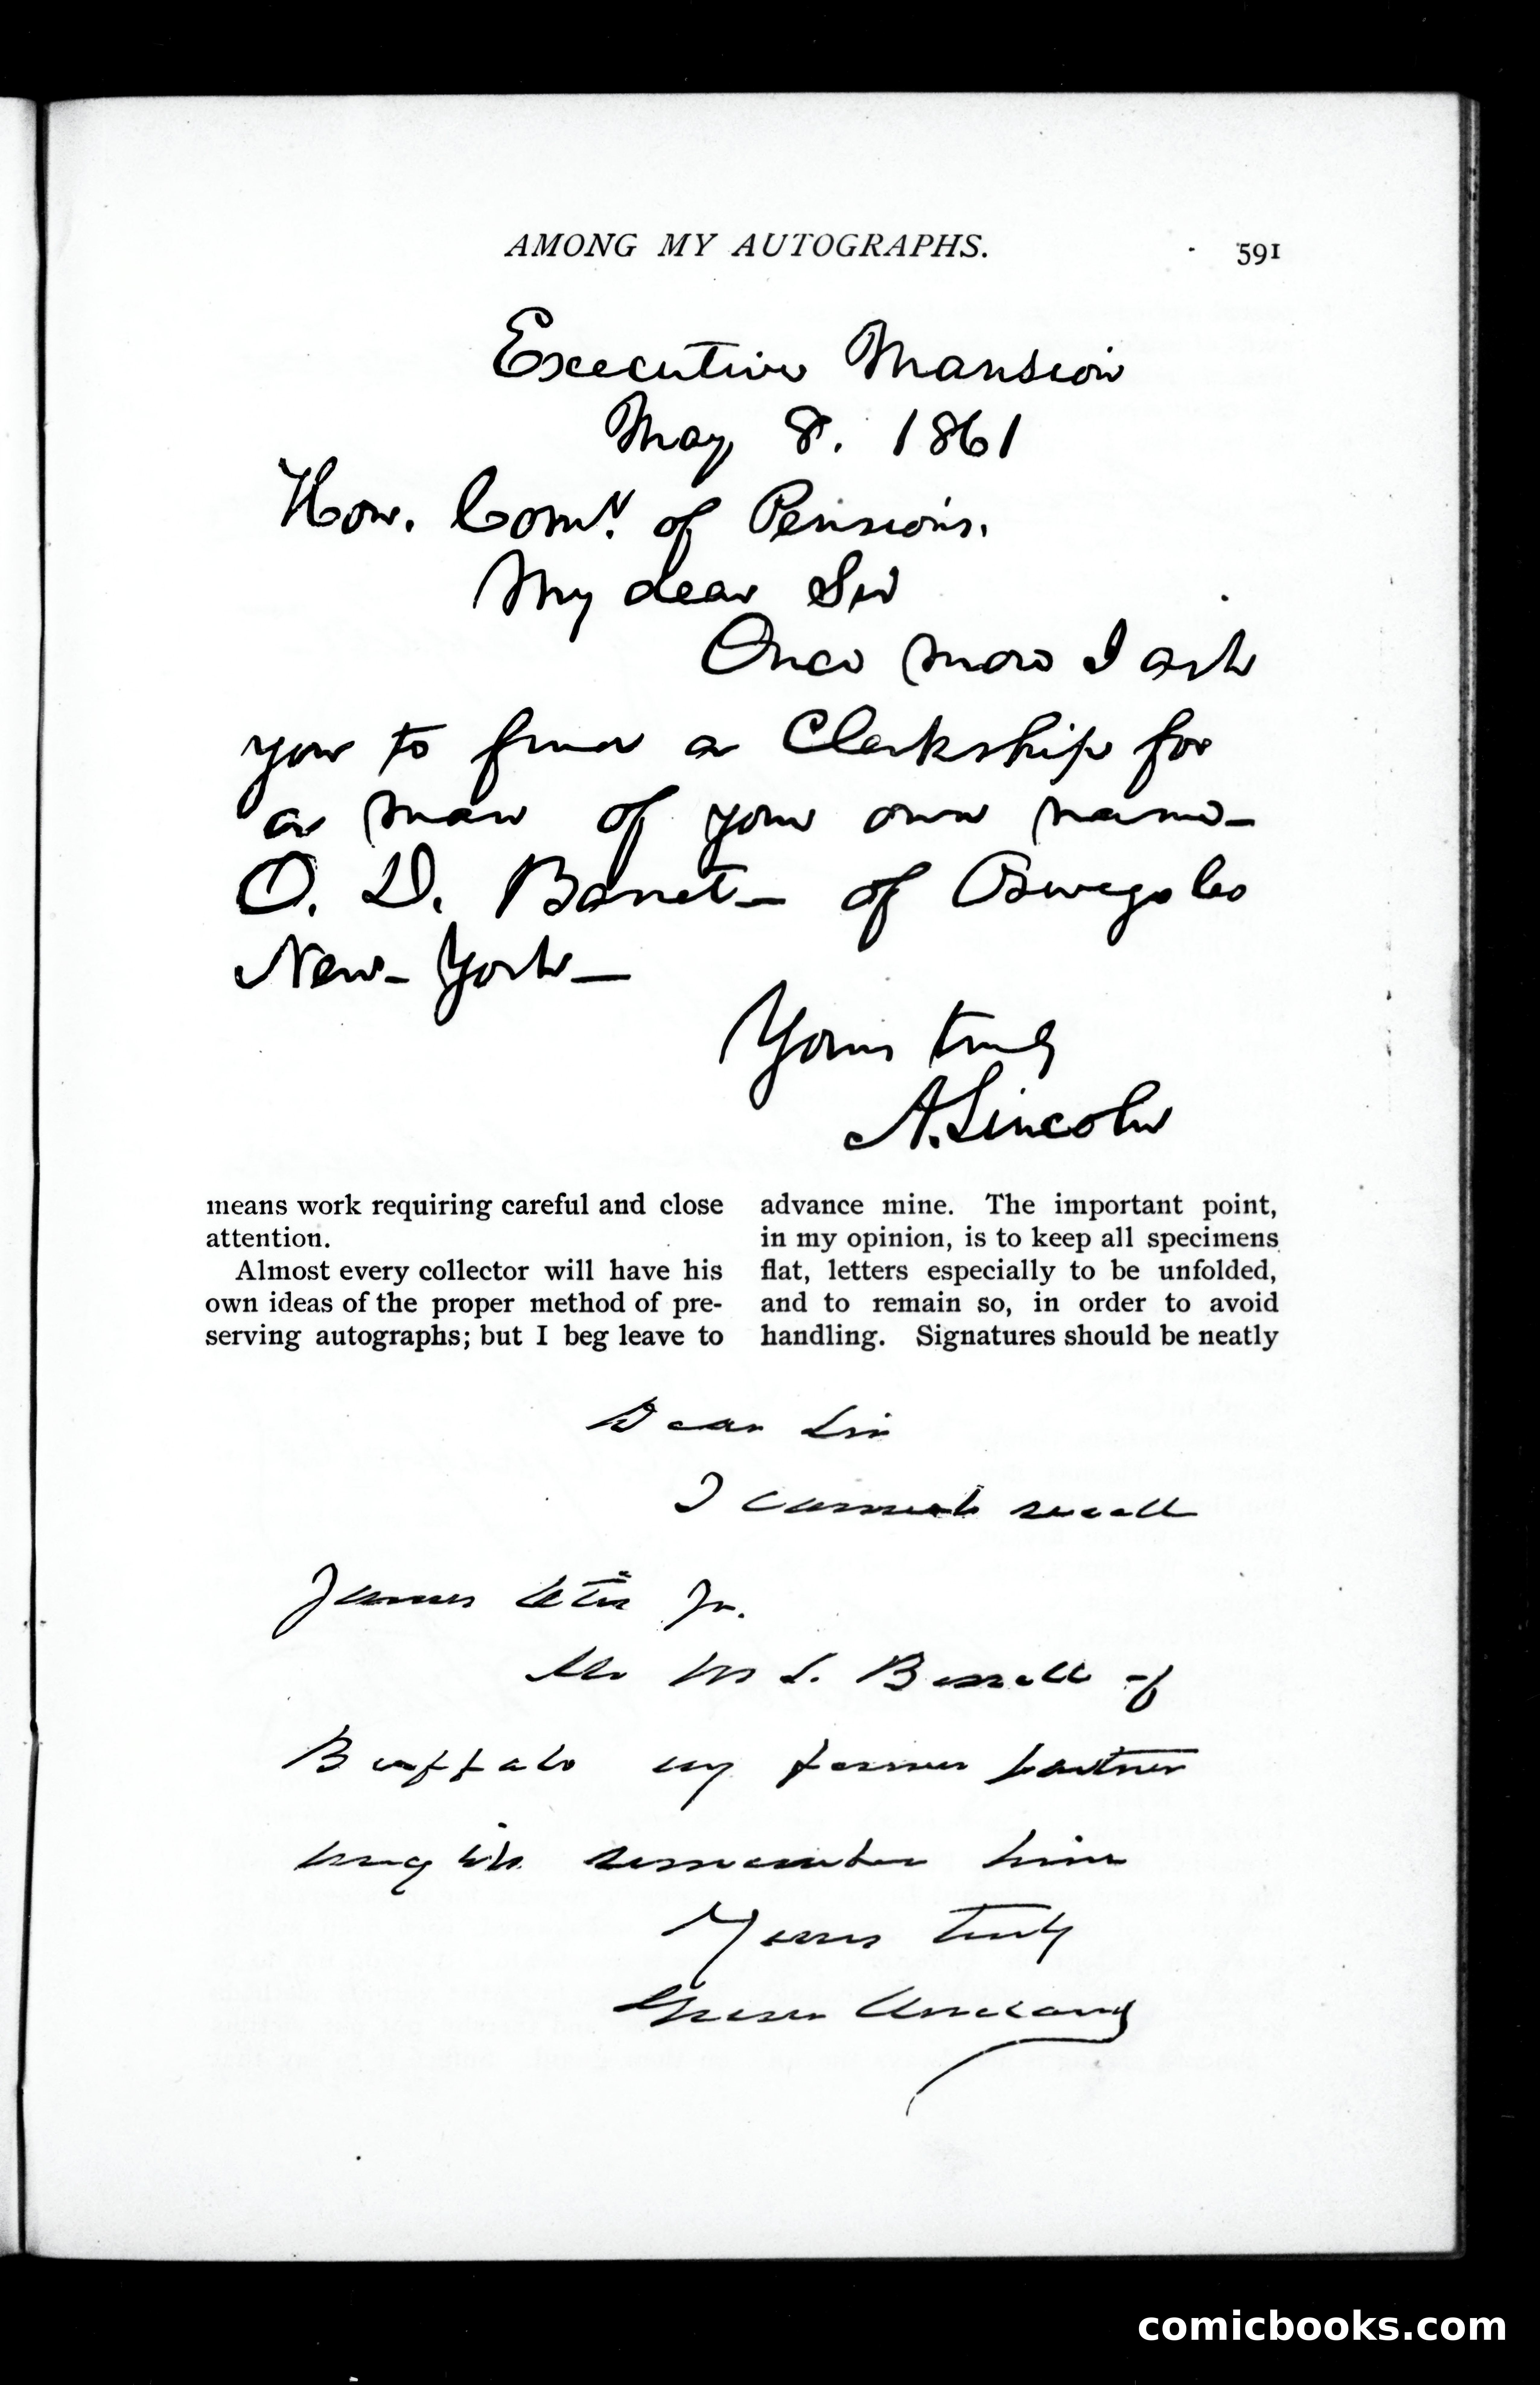 AMONG MY AUTOGRAPHS.
591
Executive Mansion
May 8. 1861
Hon. Comr. of Pensions.
My dear Sir
Once more I ask
you to find a Clerkship for
a man of your own name—
O. D. Barret— of Oswego Co
New-York—
Yours truly
A. Lincoln
means work requiring careful and close
attention.
Almost every collector will have his
own ideas of the proper method of pre-
serving autographs; but I beg leave to
advance mine. The important point,
in my opinion, is to keep all specimens
flat, letters especially to be unfolded,
and to remain so, in order to avoid
handling. Signatures should be neatly
Dear Sir
I cannot recall
James Otis Jr.
Mr W S. Bissell of
Buffalo my former partner
might remember him
Yours truly
Grover Cleveland
comicbooks.com